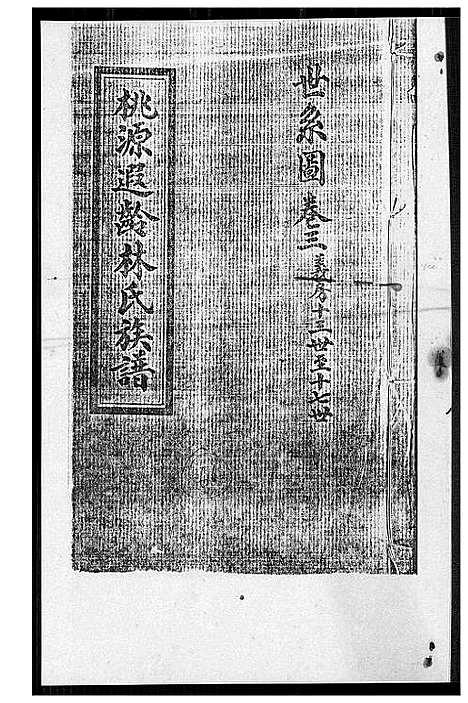 世系圖 卷三 義房十三世至十七世
桃源遐齡林氏族譜